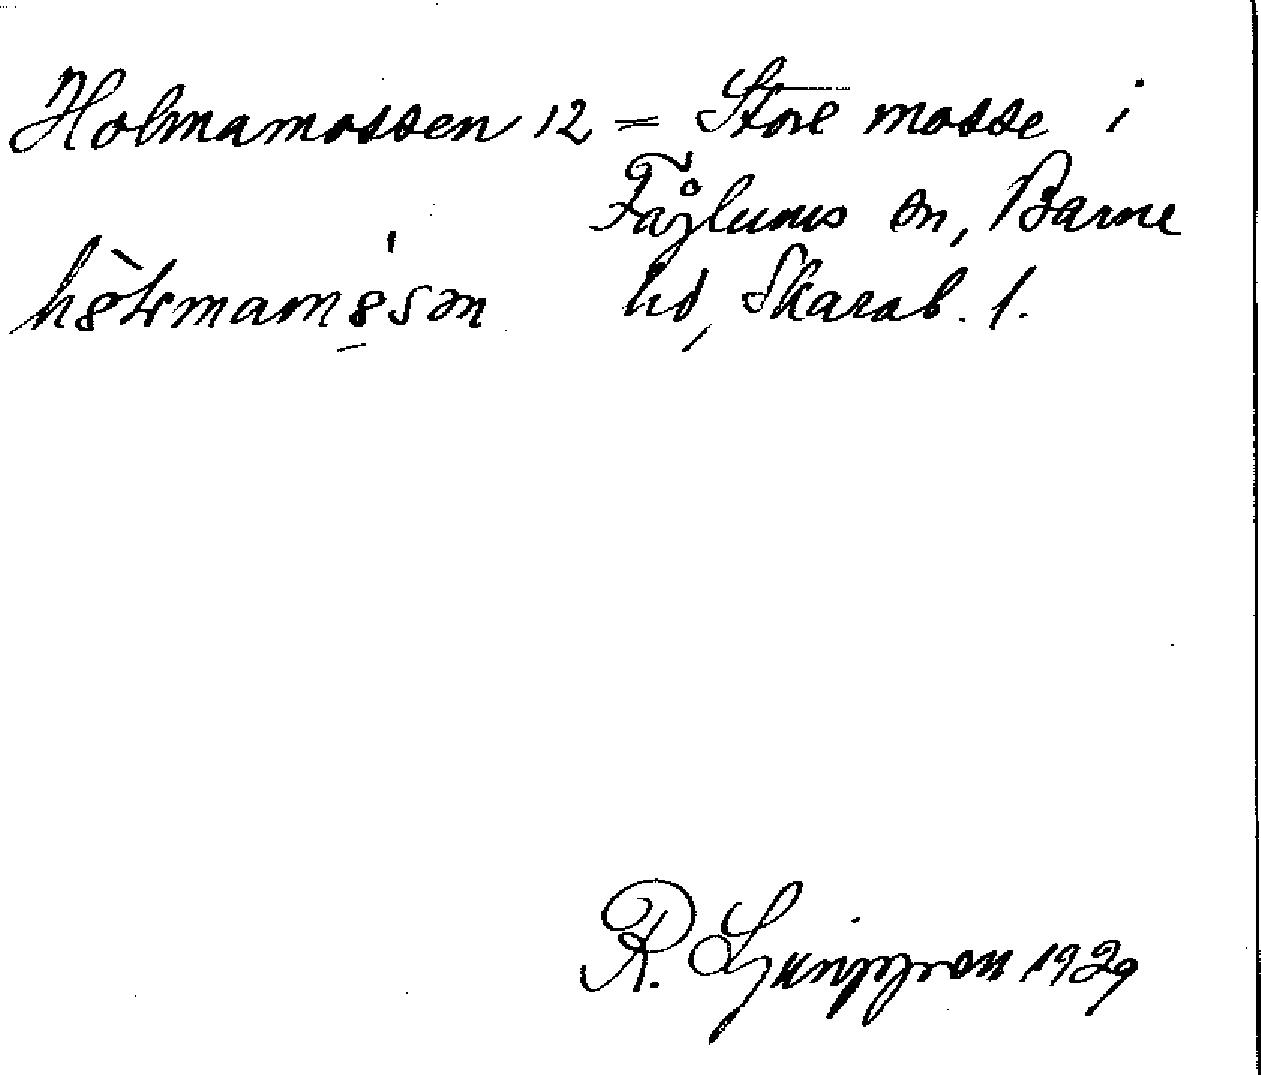 Holmamossen 12 = Store mosse i
Fåglums sn, Barne
hd, Skarab. l.
R. Ljunggren 1929